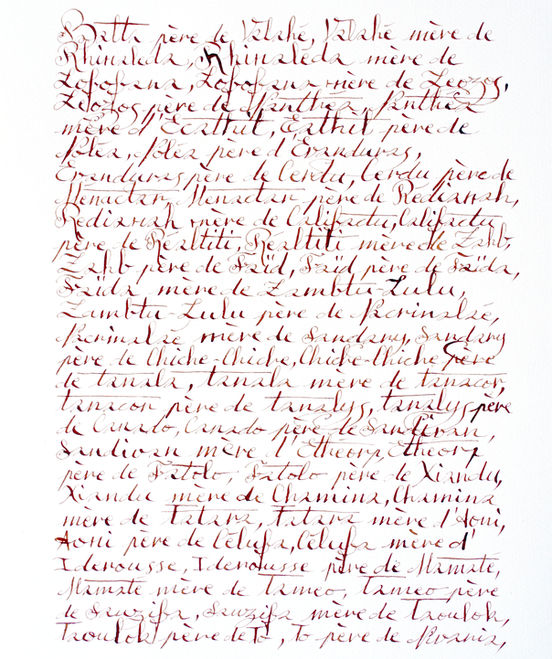 Batta père de Valahé, Valahé mère de
Rhinaleda, Rhinaleda mère de
Zofofana, Zofofana mère de Leozog,
Leozog père de Panthea, Panthea
mère d'Ecathit, Ecathit père de
père d'Eranduras,
Eranduras père de Cerdu, Cerdu père de
Menactar, Menactar père de Rediawah,
Rediawah mère de Califactu, Califactu
père de Realtiti, Realtiti mère de Zahb,
Zahb père de Faïd, Faïd père de Faïda,
Faïda mère de Zambtu-Lulu,
Zambtu-Lulu père de
mère de Sandany, Sandany
père de Chiche-Chiche, Chiche-Chiche père
de tanala, tanala mère de tanacor,
tanacor père de tanalyg, tanalyg père
de Canado, Canado père de Sandivan,
Sandivan mère d'Etheorp, Etheorp
père de Fatolo, Fatolo père de Xiandu,
Xiandu mère de Chamina, Chamina
mère de Tatara, Tatara mère d'Aoni,
Aoni père de Célufa, Célufa mère d'
Iderousse, Iderousse père de Mamate,
Mamate mère de Tameo, Tameo père
de Sauzifa, Sauzifa mère de Taoulok,
Taoulok père de To, To père de